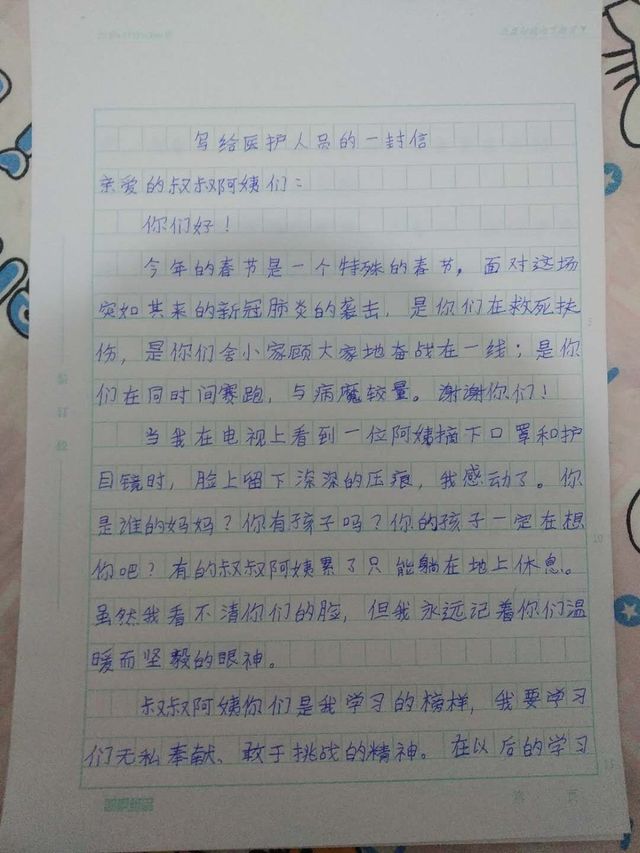 写给医护人员的一封信
亲爱的叔叔阿姨们:
你们好!
今年的春节是一个特殊的春节,面对这场
突如其来的新冠肺炎的袭击,是你们在救死扶
伤,是你们舍小家顾大家地奋战在一线;是你
们在同时间赛跑,与病魔较量。谢谢你们!
当我在电视上看到一位阿姨摘下口罩和护
目镜时,脸上留下深深的压痕,我感动了。你
是谁的妈妈?你有孩子吗?你的孩子一定在想
你吧?有的叔叔阿姨累了只能躺在地上休息。
虽然我看不清你们的脸,但我永远记着你们温
暖而坚毅的眼神。
叔叔阿姨你们是我学习的榜样,我要学习
们无私奉献、敢于挑战的精神。在以后的学习
第 页